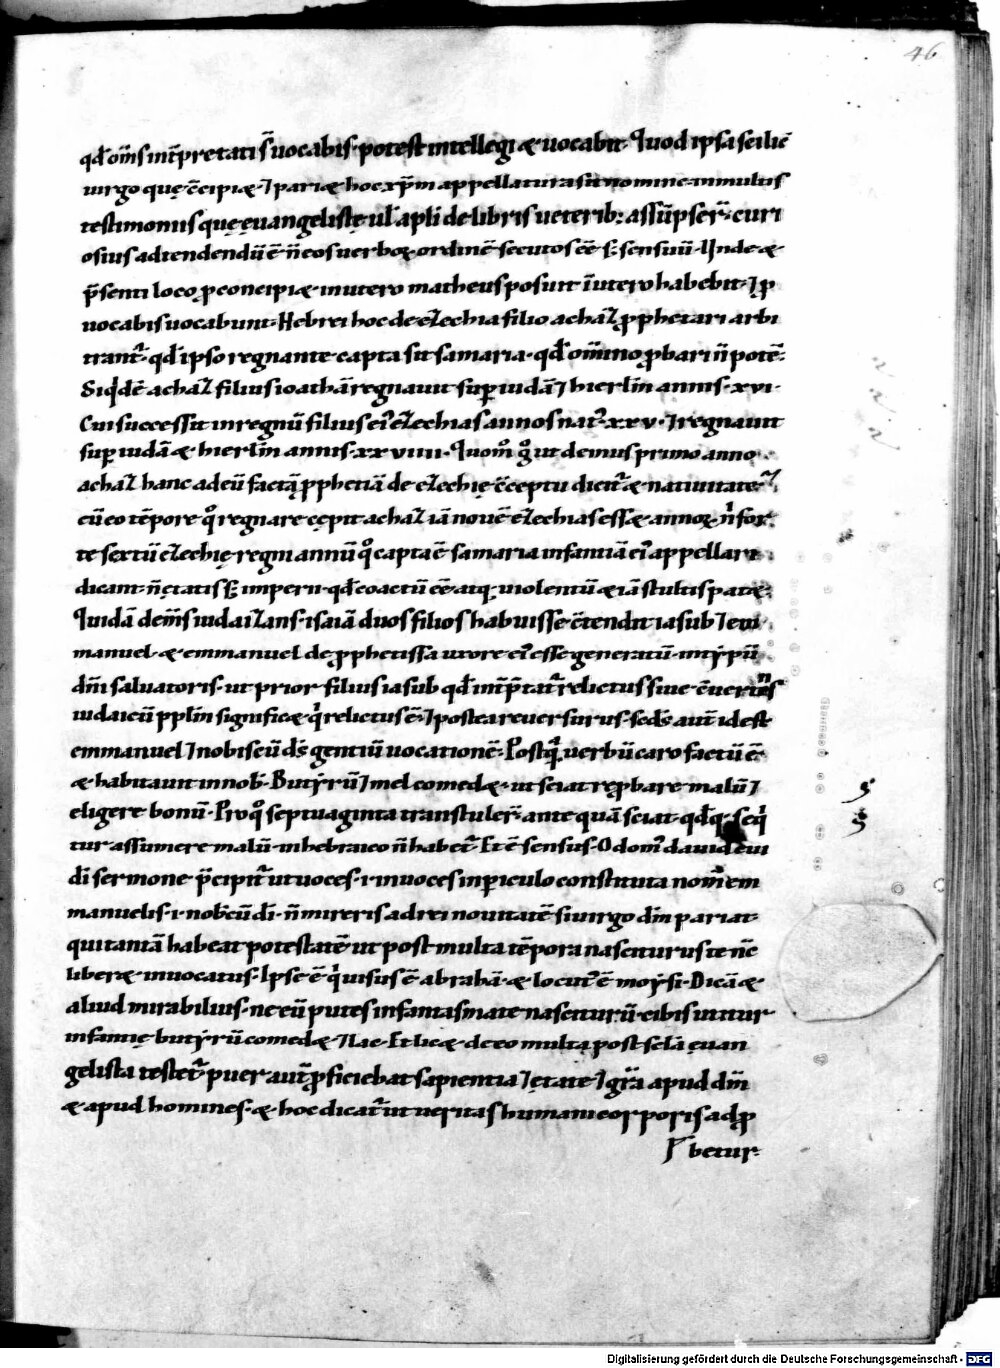 46
qd̄ om̄s int̄pretati s̄ uocabis· potest intellegi & uocabit· Quod ipsa scilic̄
uirgo quę c̄cipi& ⁊ pari& hoc xp̄m appellatura sit nomine· In multis
testimoniis quę euangelistę ul̄ apl̄i de libris ueterib: assūpser̄· curi
osius adtendendū ē n̄ eos uerboꝝ ordinē secutos eē S; sensuū· Unde &
p̄senti loco ꝓ concipi& in utero matheus posuit ī utero habebit· ⁊ ꝓ
uocabis uocabunt· Hebrei hoc de ezechia filio achaz ꝓphetari arbi
trant̄· qd̄ ipso regnante capta sit samaria· qd̄ om̄ino ꝓbari n̄ potē·
Siqⁱdē achaz filius ioathā regnauit sup̄ iudā ⁊ hierl̄m annis· xvi·
Cui successit in regnū filius ei᾽ ezechias annos nat᾽ xxv· ⁊ regnauit
sup̄ iudā & hierl̄m annis· xxviiii· Quom̊ g̊ ut demus primo anno
achaz hanc ad eū factā ꝓphetiā de ezechię c̄ceptu dicit̄ & natiuitate
cū eo tēpore q̊ regnare cępit achaz iā nouē ezechias ess& annoꝝ· n̄ for
te sextū ezechię regni annū q̊ capta ē samaria infantiā ei᾽ appellari
dicant· n̄ ętatis S; imperii· qd̄ coactū eē atq; uiolentū & iā stultis pat&·
Quidā dem̄s iudaizans· isaiā duos filios habuisse c̄tendit iasub ⁊ em
manuel· & emmanuel de ꝓphetissa uxore ei᾽ esse generatū· in typū
dn̄i saluatoris· ut prior filius iasub qd̄ int̄p̄tat̄ relictus siue c̄uertēs
iudaicū pplm̄ significę qⁱ relictus ē· ⁊ postea reuersurus· sed̄s aut̄ id est
emmanuel ⁊ nobiscū ds̄ gentiū uocationē· Postq̄ uerbū caro factū ē
& habitauit in nob᾽· Butyrū ⁊ mel comed& ut sciat reꝓbare malū ⁊
eligere bonū· Pro q̊ septuaginta transtuler̄· ante quā sciat· qd̄q; seqⁱ
tur assumere malū· in hebraico n̄ habet̄· Et ē sensus· O dom᾽ dauid cui
dī sermone p̄cipit̄ ut uoces· i· inuoces in ꝑiculo constituta nom̄ em
manuelis· i· nob᾽cū dī· n̄ mireris ad rei nouitatē si uirgo dm̄ pariat·
qui tantā habeat potestatē ut post multa tēpora nasciturus te nc̄
liber& inuocatus· Ipse ē qⁱ uisus ē abrahā· & locut᾽ ē moysi· Dicā &
aliud mirabilius· ne eū putes in fantasmate nasciturū· cibis utitur
infantię butyrū comed& ⁊ lac· Et lic& de eo multa post scl̄a euan
gelista testet̄· puer aut̄ ꝓficiebat sapientia ⁊ ętate ⁊ gr̄a apud dm̄
& apud homines· & hoc dicat̄ ut ueritas humani corporis adꝓ
betur·